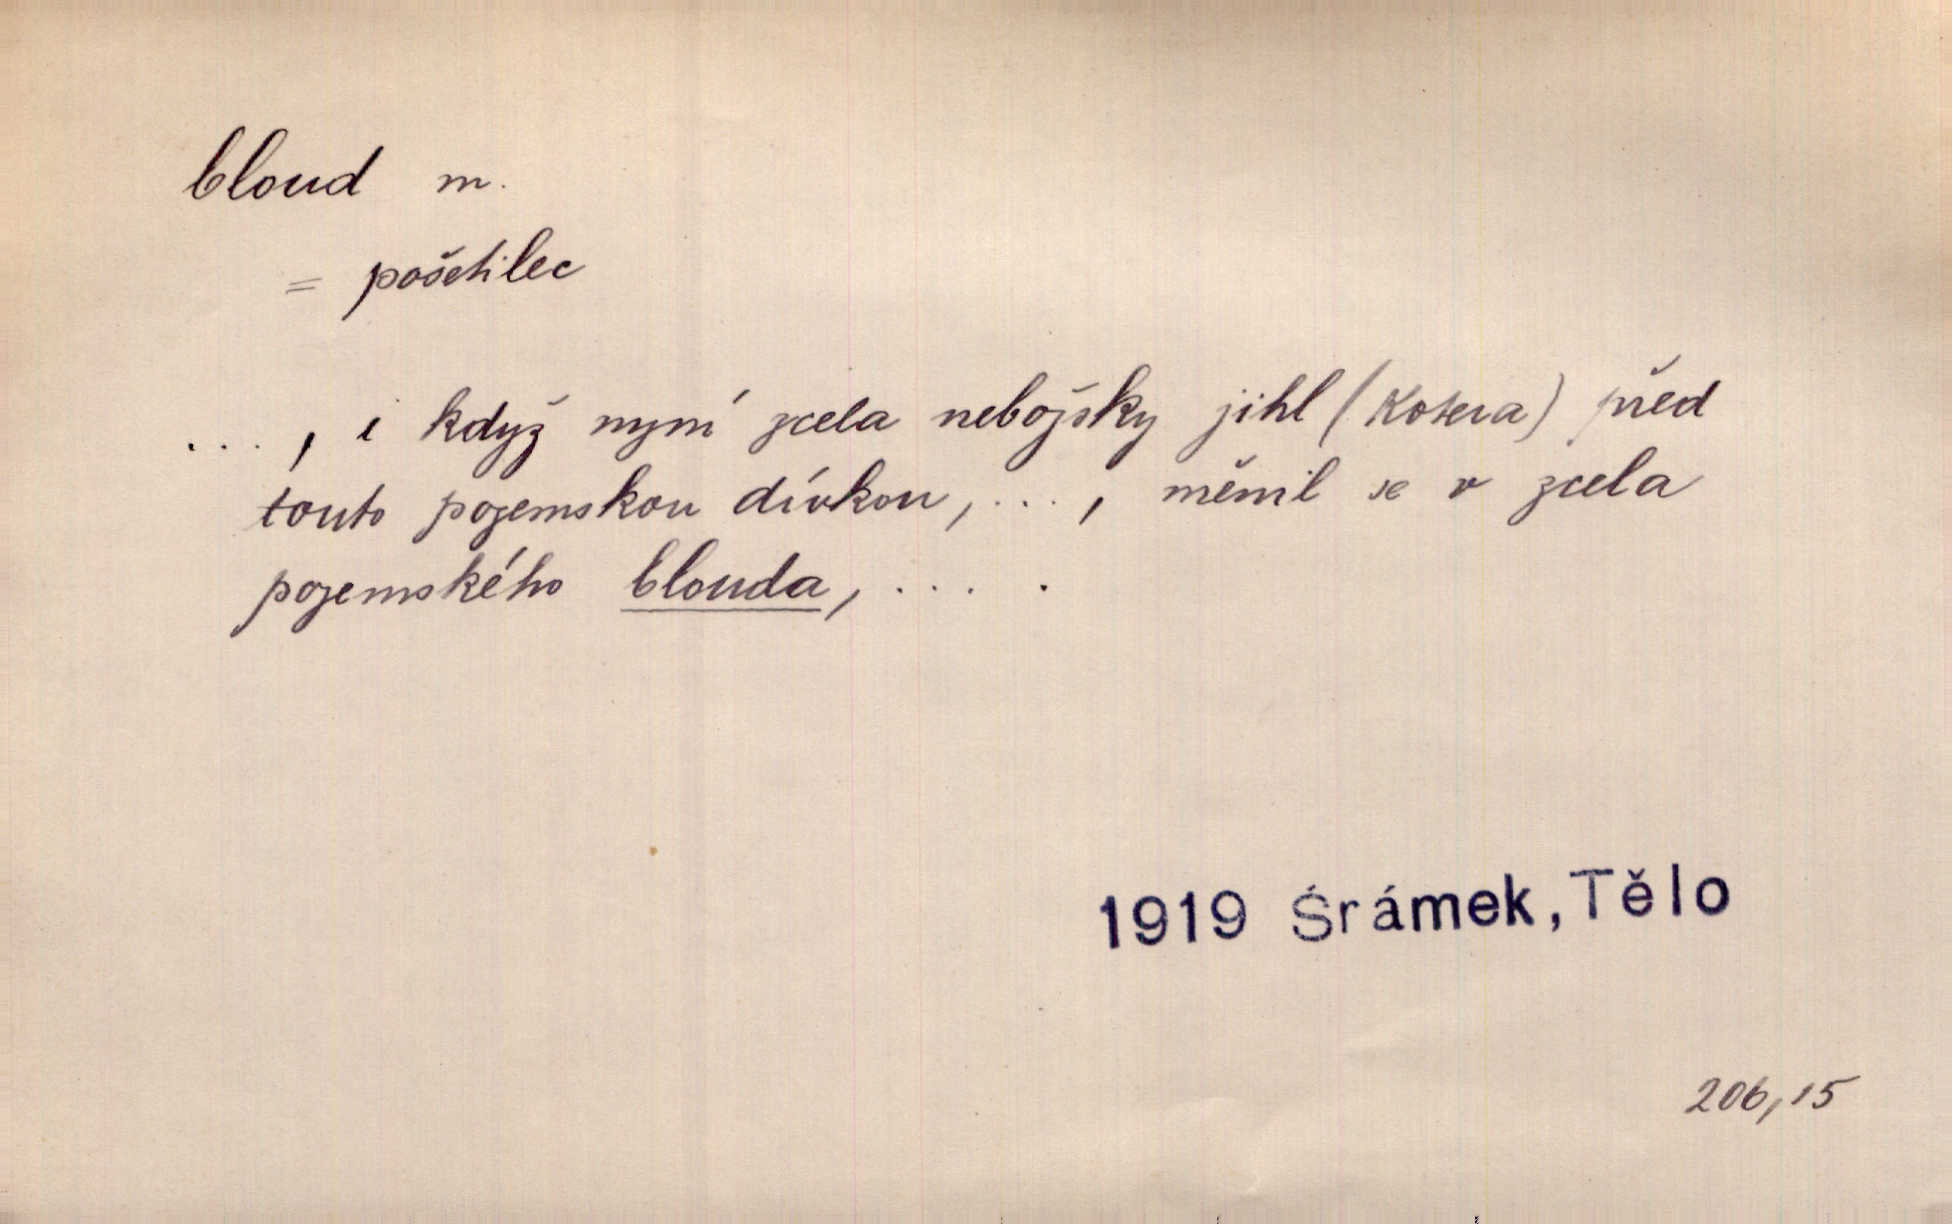 bloud m.
= pošetilec
..., i když nyní zcela nebožsky jihl (Kotera) před
touto pozemskou dívkou, ..., měnil se v zcela
pozemského blouda, ... .
1919 Šrámek, Tělo
206, 15